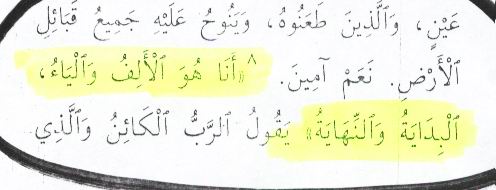 عَيْنٍ، وَٱلَّذِينَ طَعَنُوهُ، وَيَنُوحُ عَلَيْهِ جَمِيعُ قَبَائِلِ
ٱلْأَرْضِ. نَعَمْ آمِينَ. ٨«أَنَا هُوَ ٱلْأَلِفُ وَٱلْيَاءُ،
ٱلْبِدَايَةُ وَٱلنِّهَايَةُ» يَقُولُ ٱلرَّبُّ ٱلْكَائِنُ وَٱلَّذِي